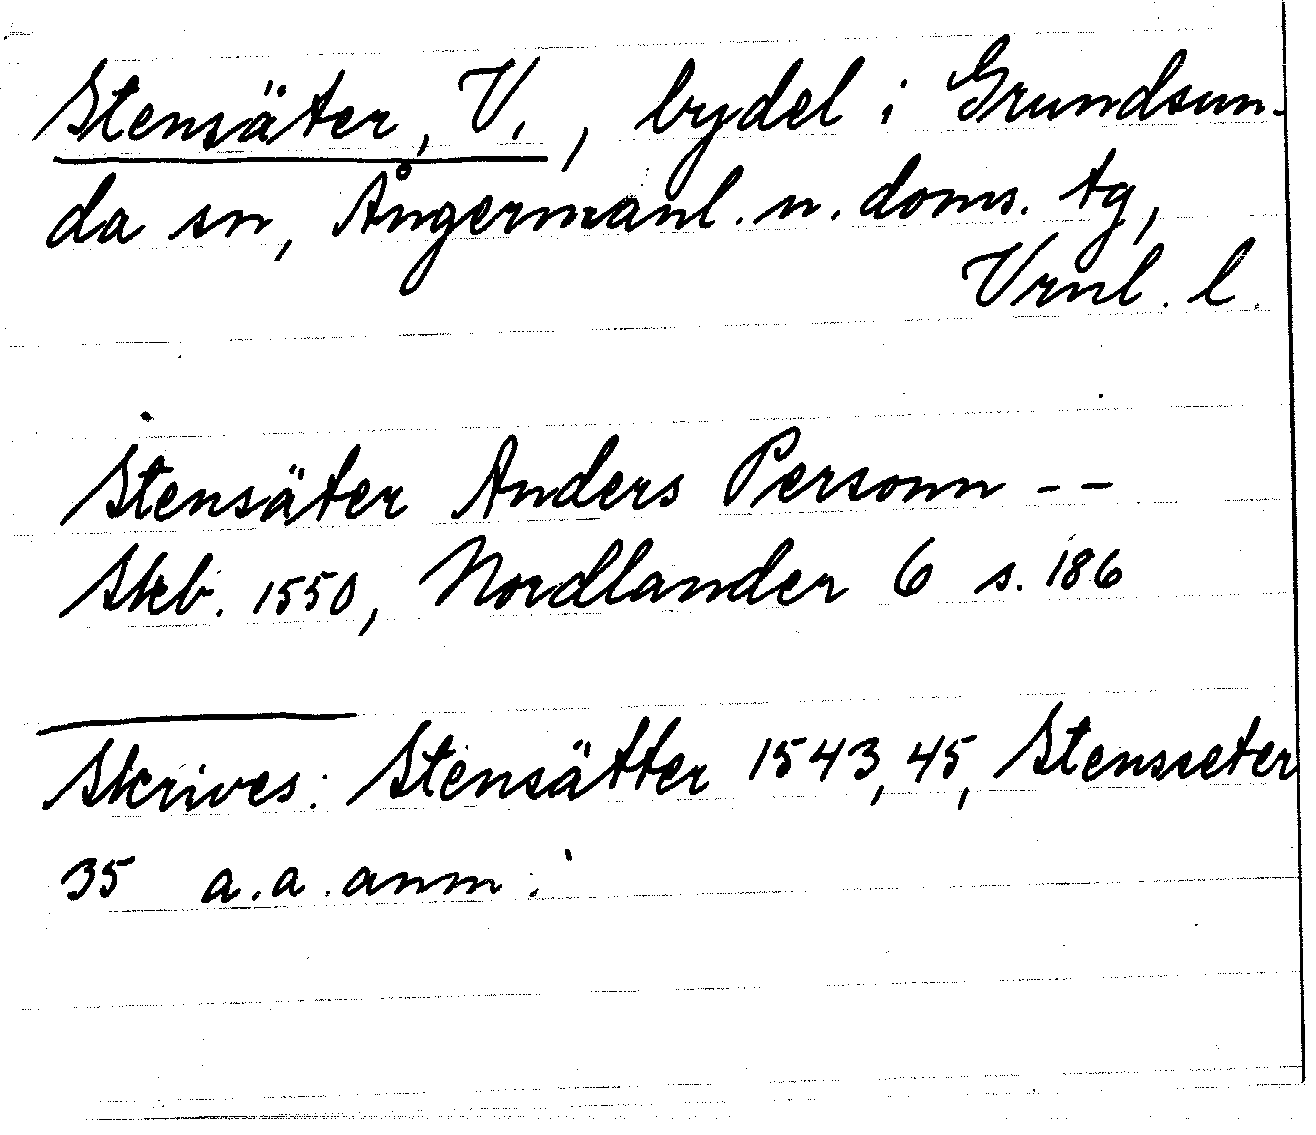 Stensäter, V., bydel i Grundsun-
da sn, Ångermanl. n. doms. tg,
Vrnl. l.
Stensäter Anders Personn - -
Skb. 1550, Nordlander 6 s. 186
Skrives: Stensätter 1543, 45, Stensseter
35 a.a. anm.